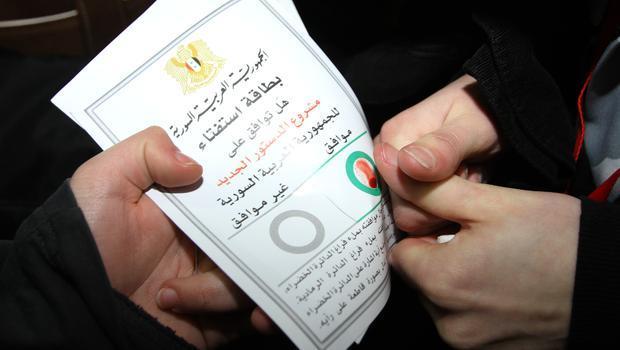 الجمهورية العربية السورية
بطاقة استفتاء
هل توافق على
مشروع الدستور الجديد
للجمهورية العربية السورية
موافق
غير موافق
موافقته بملء فراغ الدائرة الخضراء،
بملء فراغ الدائرة الرمادية.
على الدائرة الخضراء
بصورة قاطعة على رأيه.